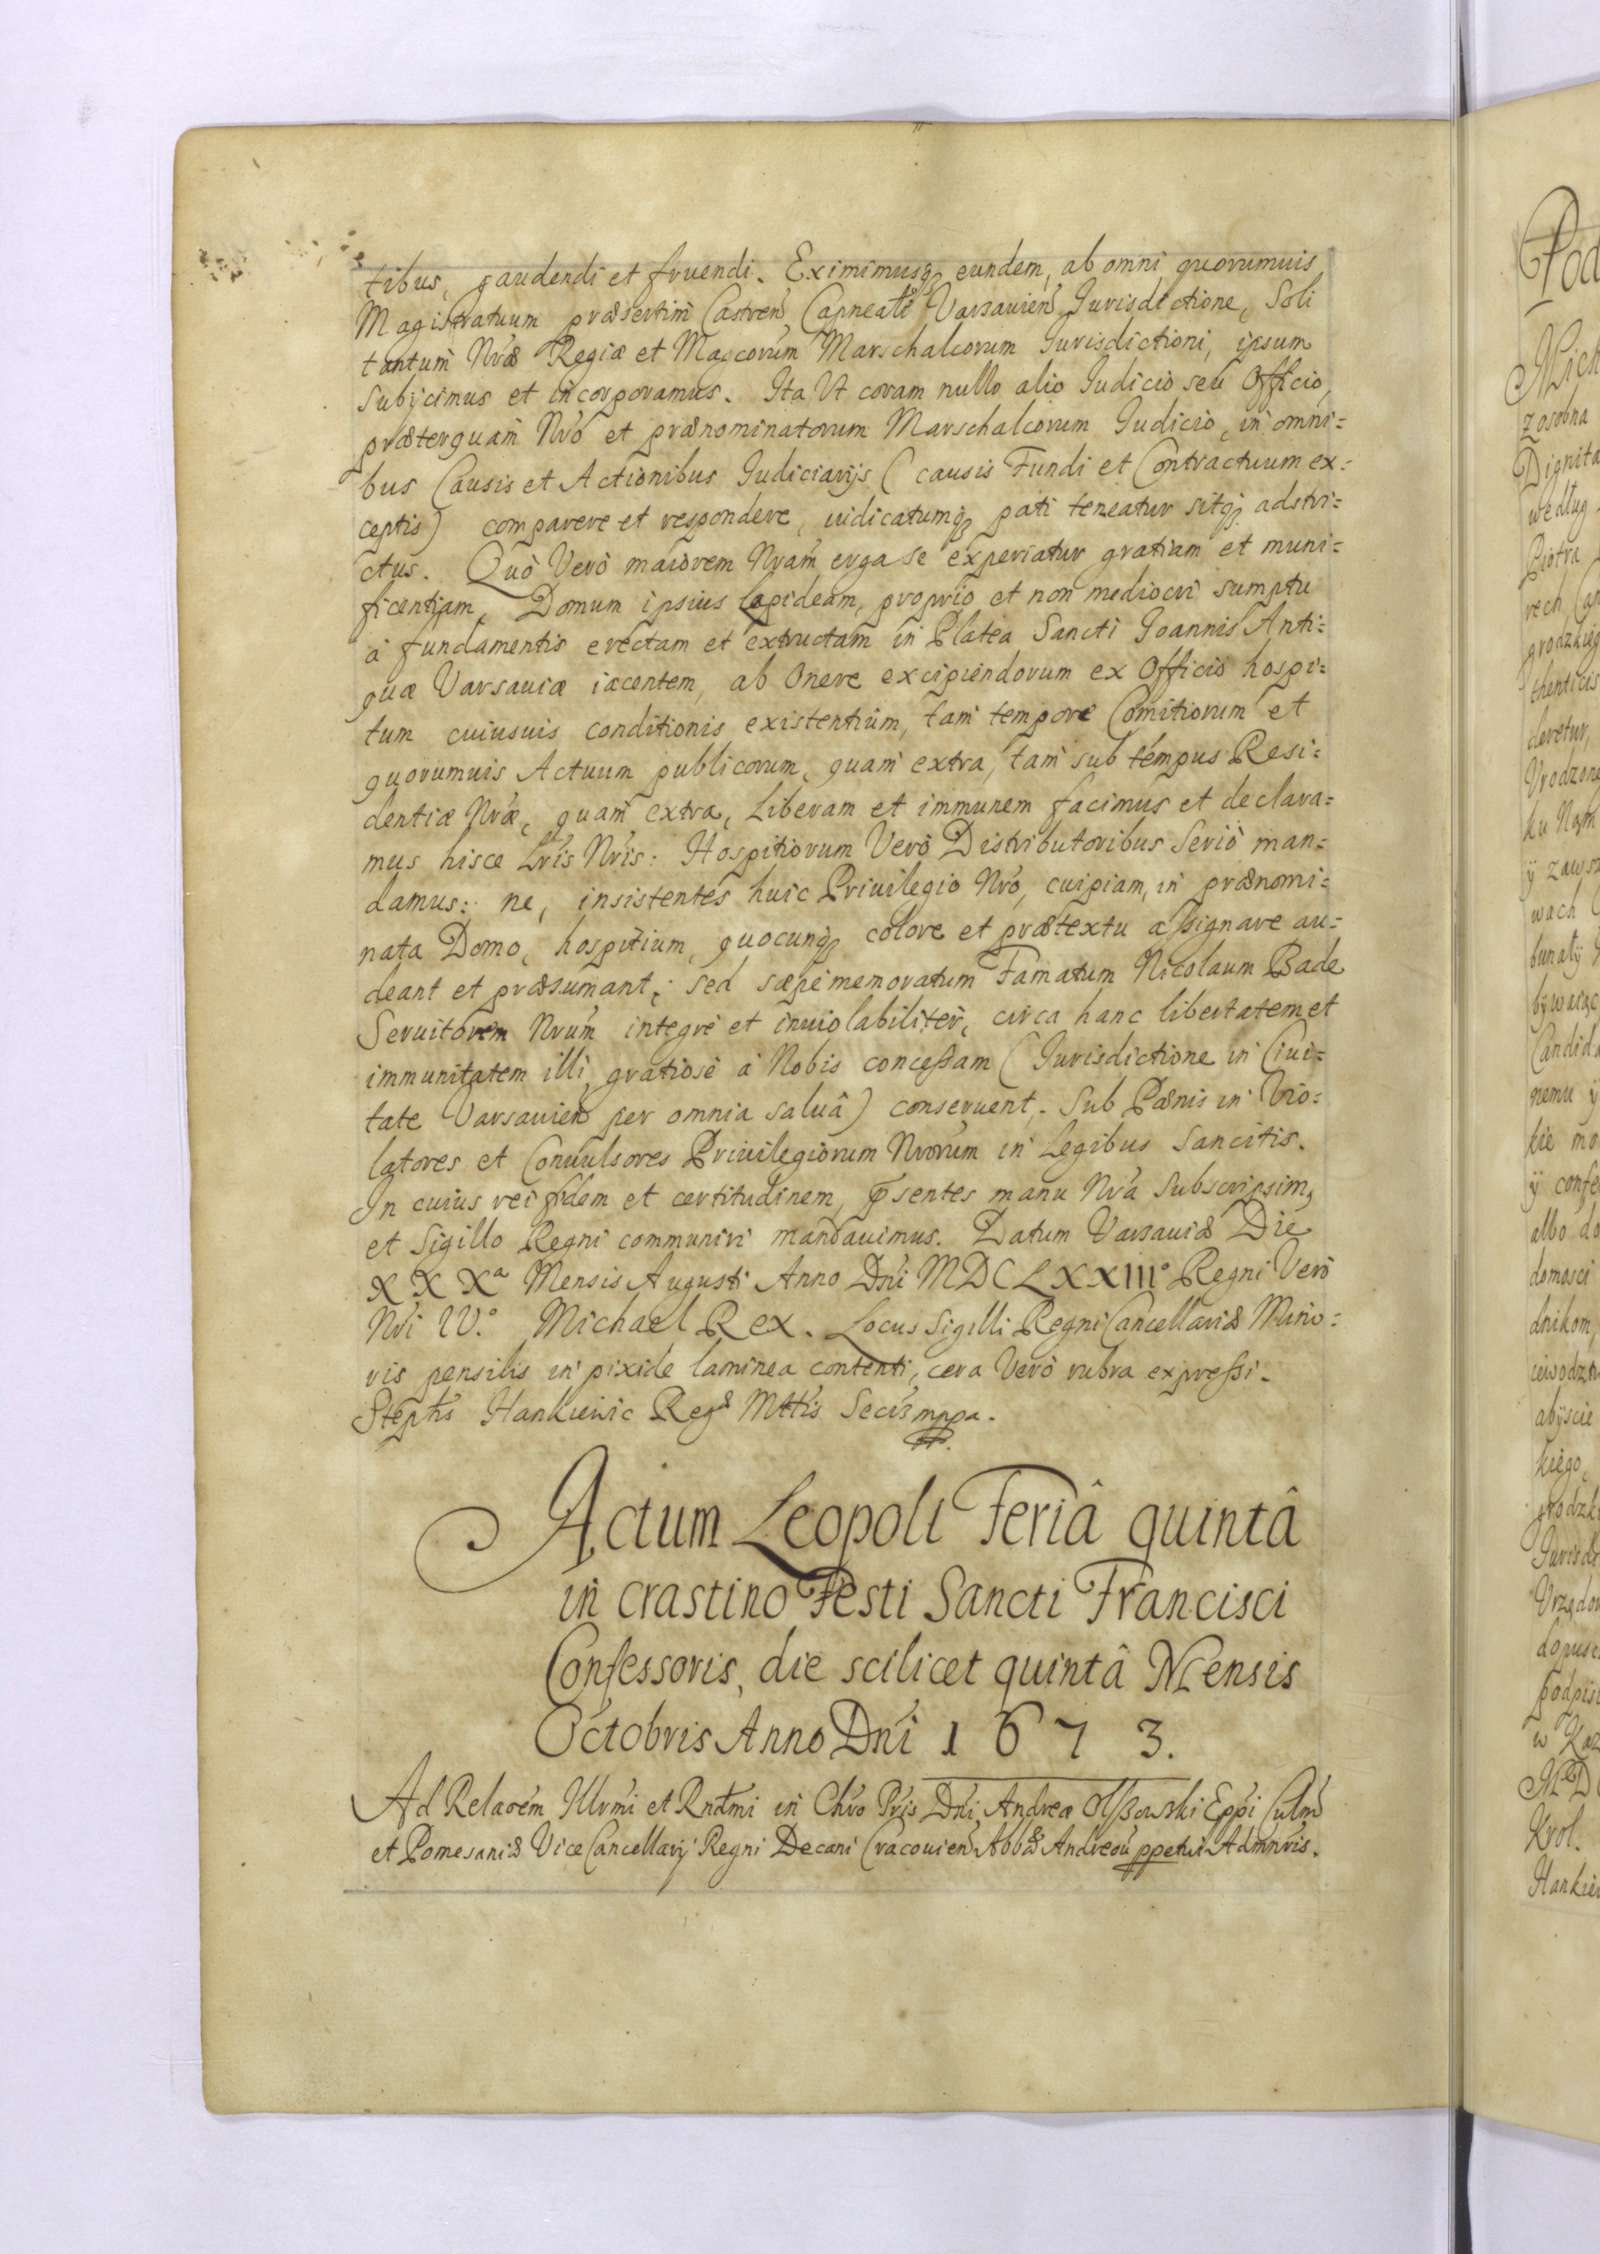 tibus, gaudendi et fruendi. Eximimusq; eundem, ab omni quorumuis
Magistratuum præsertim Castren Capneali Varsauien Iurisdictione, Soli
tantum Nræ Regiæ et Magcorum Marschalcorum Iurisdictioni, ipsum
subijcimus et incorporamus. Ita Vt coram nullo alio Iudicio seu Officio,
præterquam Nro et prænominatorum Marschalcorum Iudicio, in omni=
bus Causis et Actionibus Iudiciarijs (causis Fundi et Contractuum ex=
ceptis) comparere et respondere, iudicatumq; pati teneatur sitq; adstri=
ctus. Quò Verò maiorem Nram erga se experiatur gratiam et muni=
ficentiam, Domum ipsius Lapideam, proprio et non mediocri sumptu
à fundamentis erectam et extructam in Platea Sancti Ioannis Anti=
quæ Varsauiæ iacentem, ab Onere excipiendorum ex Officio hospi=
tum cuiusuis conditionis existentium, tam tempore Comitiorum et
quorumuis Actuum publicorum, quam extra, tam sub tempus Resi=
dentiæ Nræ, quam extra, Liberam et immunem facimus et declara=
mus hisce Lris Nris: Hospitiorum Verò Distributoribus Seriò man=
damus: ne, insistentes huic Priuilegio Nro, cuipiam, in prænomi=
nata Domo, hospitium, quocunq; colore et prætextu assignare au=
deant et præsumant; sed sæpememoratum Famatum Nicolaum Bade
Seruitorem Nrum integrè et inuiolabiliter, circa hanc libertatem et
immunitatem illi gratiosè à Nobis concessam (Iurisdictione in Ciui=
tate Varsauien per omnia saluâ) conseruent, Sub Pænis in Vio=
latores et Conuulsores Priuilegiorum Nrorum in Legibus Sancitis.
In cuius rei fidem et certitudinem, psentes manu Nra Subscripsim9
et Sigillo Regni communiri mandauimus. Datum Varsauiæ Die
XXXa Mensis Augusti Anno Dni MDCLXXIIIo Regni Verò
Nri IV.o Michael Rex. Locus Sigilli Regni Cancellariæ Mino=
ris pensilis in pixide laminea contenti, cera Verò rubra expressi.
Stephs Hankiewic Regæ Mttis Secris mppa.
Actum Leopoli Feriâ quintâ
in crastino Festi Sancti Francisci
Confessoris, die scilicet quintâ Mensis
Octobris Anno Dni 1673.
Ad Relaoem Illrmi et Rndmi in Chro Pris Dni Andreæ Olszowski Eppi Culm
et Pomesaniæ Vice Cancellarij Regni Decani Cracouien Abbæ Andreou ppetui Admnris.